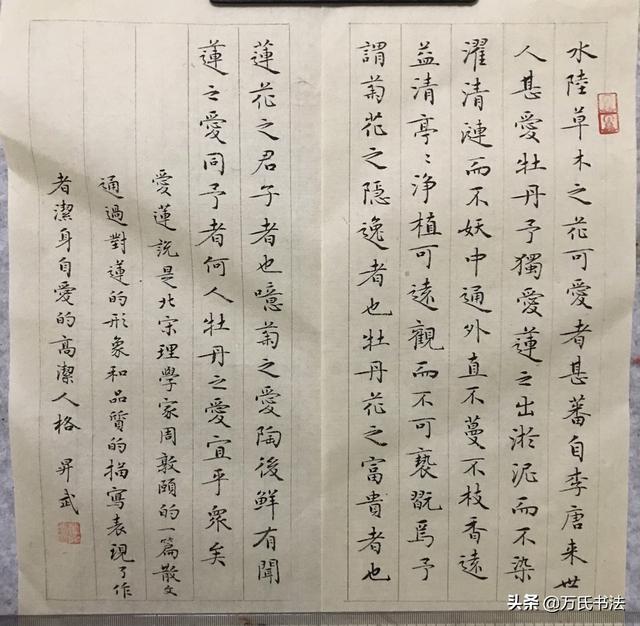 水陸草木之花可愛者甚蕃自李唐来世
人甚愛牡丹予獨愛蓮之出淤泥而不染
濯清漣而不妖中通外直不蔓不枝香遠
益清亭〻净植可遠觀而不可褻翫焉予
謂菊花之隱逸者也牡丹花之富貴者也
蓮花之君子者也噫菊之愛陶後鮮有聞
蓮之愛同予者何人牡丹之愛宜乎衆矣
愛蓮説是北宗理學家周敦頤的一篇散文
通過對蓮的形象和品質的描寫表現了作
者潔身自愛的高潔人格 昇武
头条 @万氏书法